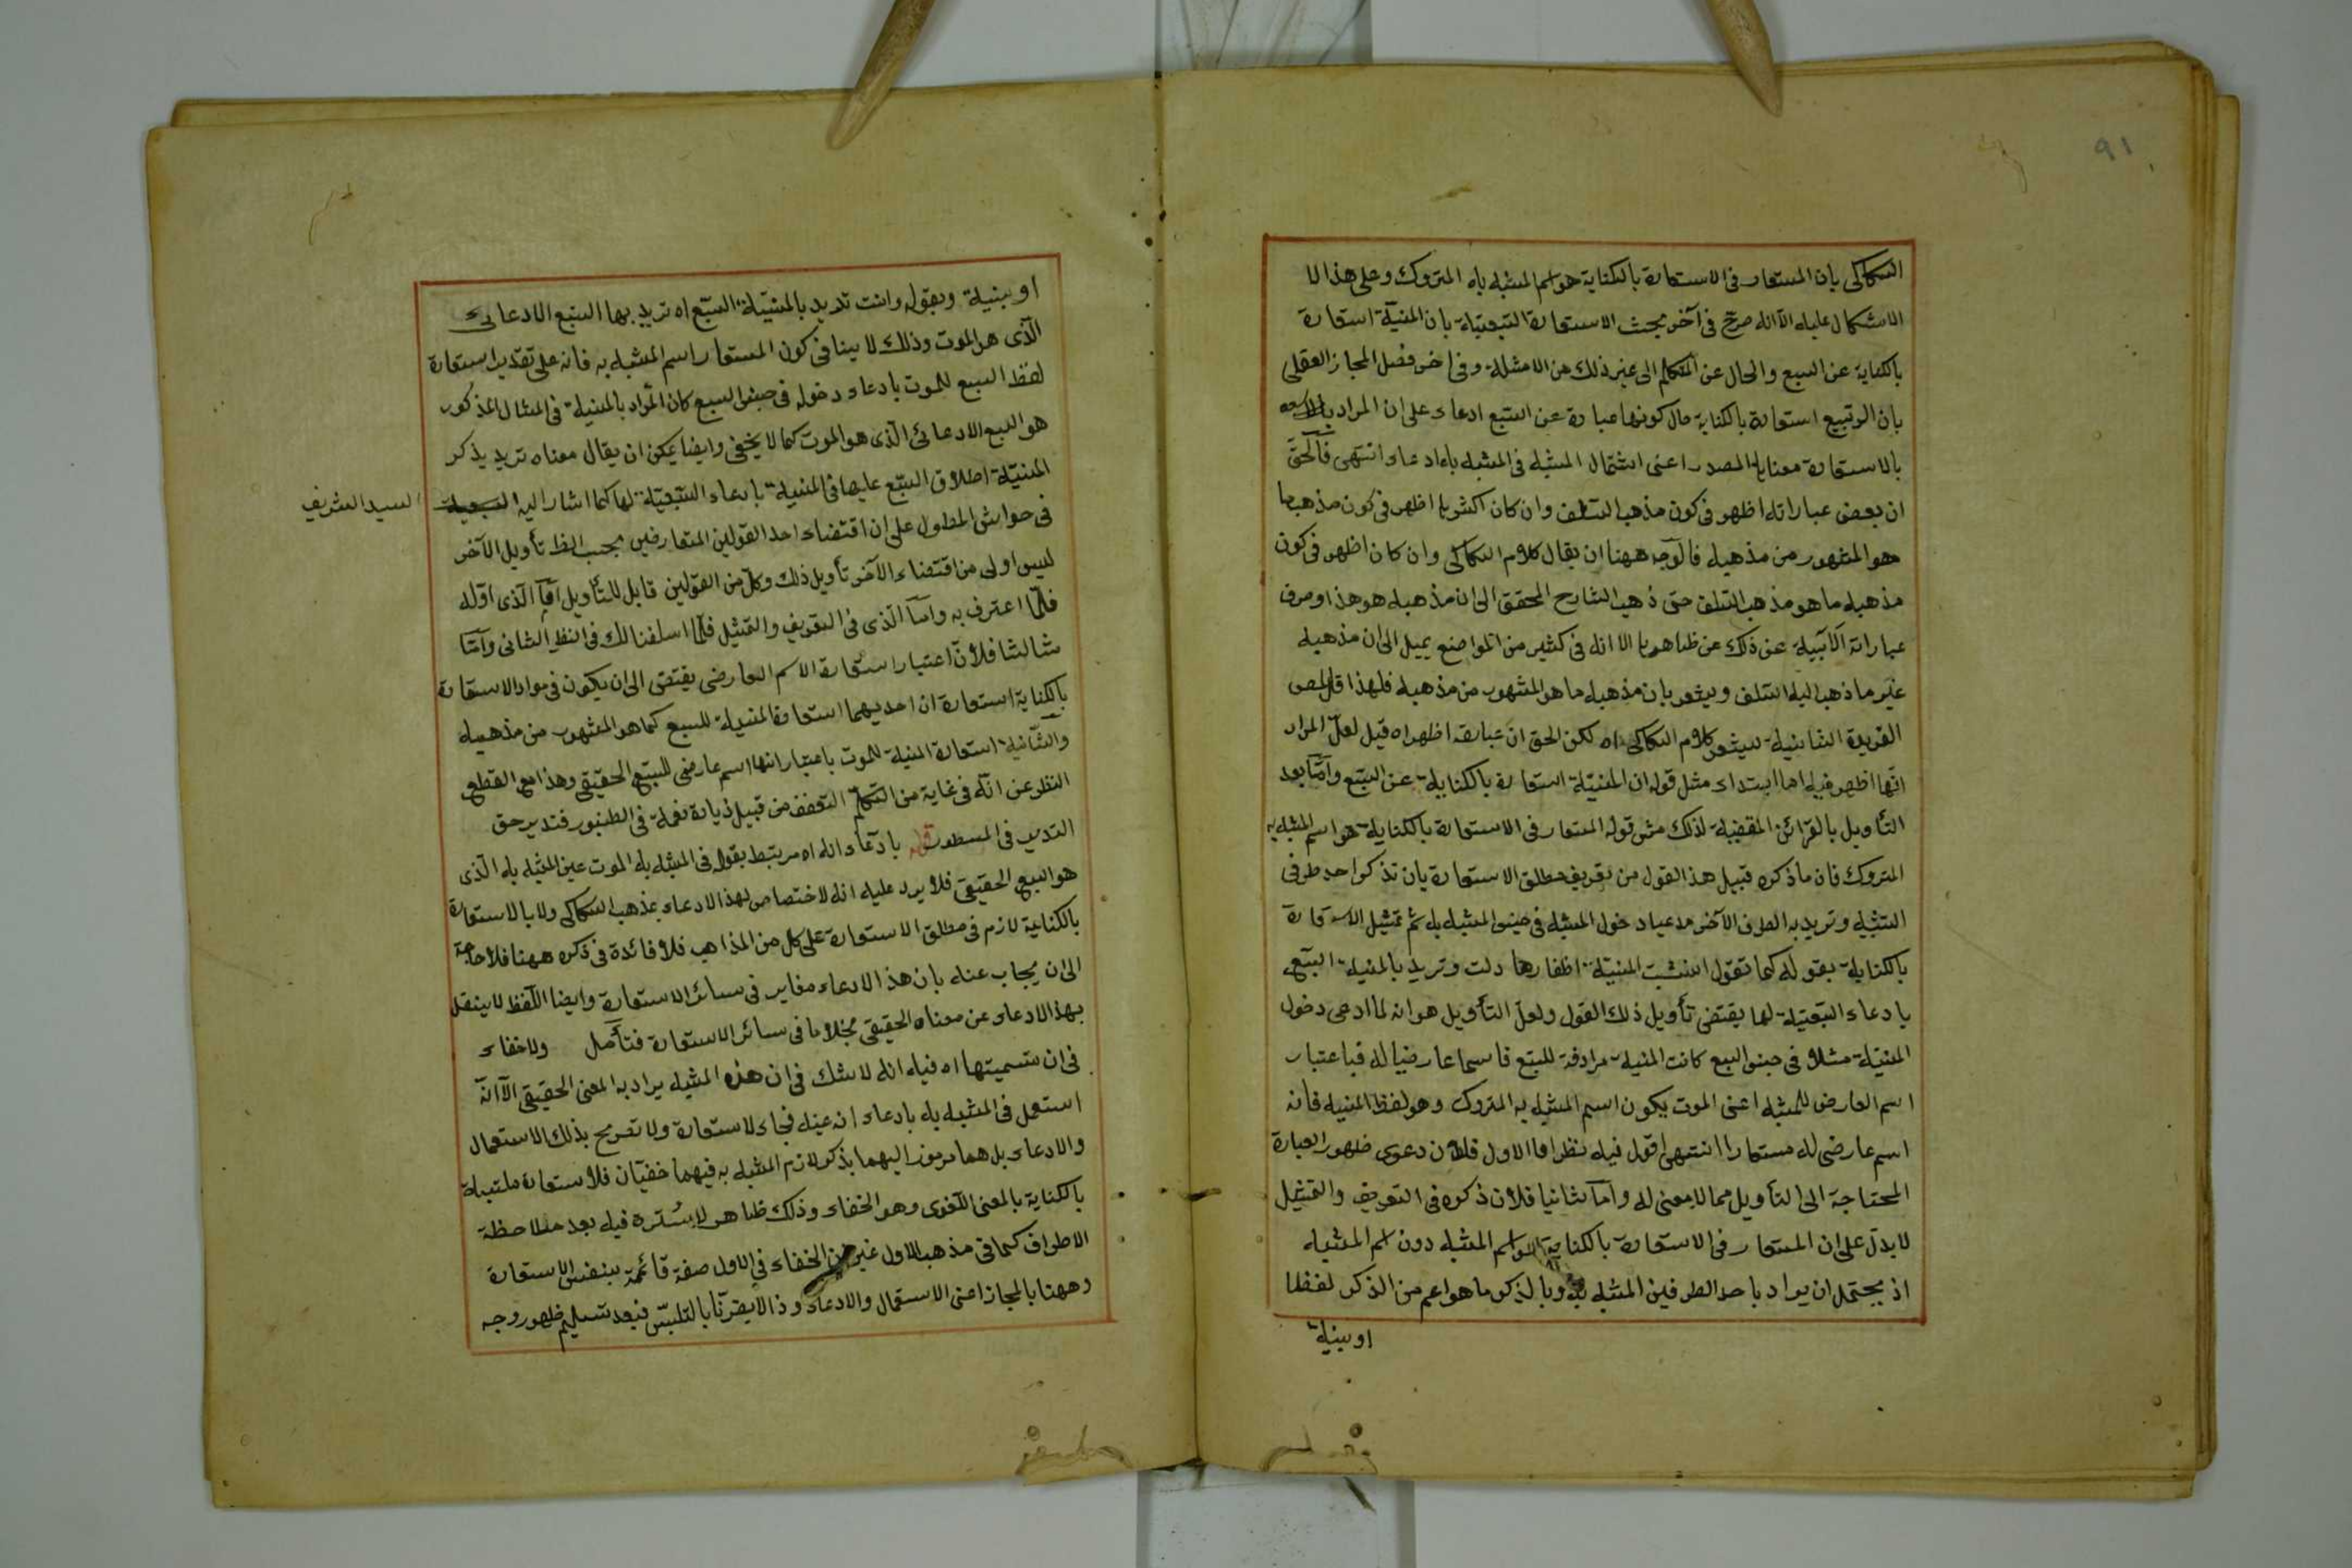 ٩١
السكاكى بان المستعار فى الاستعارة بالكناية هو اسم المشبه به المتروك وعلى هذا لا
الاشكال عليه الا انه صرح فى آخر بحث الاستعارة التبعية بان المنية استعارة
بالكناية عن السبع والحال عن المتكلم الى غير ذلك من الامثلة وفى آخر فصل المجاز العقلى
بان الربيع استعارة بالكناية حال كونها عبارة عن السبع ادعاء على ان المراد
بالاستعارة معناها المصدر اعنى اشتمال المشبه فى المشبه به ادعاء انتهى فالحق
ان بعض عباراته اظهر فى كون مذهب السلف وان كان اكثرها اظهر فى كون مذهبه ما
هو المشهور من مذهبه فالوجه ههنا ان يقال كلام السكاكى وان كان اظهر فى كون
مذهبه ما هو مذهب السلف حتى ذهب الشارح المحقق الى ان مذهبه هو هذا وصرف
عباراته الآبية عن ذلك عن ظاهرها الا انه فى كثير من المواضع يميل الى ان مذهبه
غير ما ذهب اليه السلف ويشعر بان مذهبه ما هو المشهور من مذهبه فلهذا قال المص
الفريدة الثانية يشعر كلام السكاكى اه لكن الحق ان عبارته اظهر اه قيل لعل المراد
انها اظهر فيه اما ابتداء مثل قوله ان المنية استعارة بالكناية عن السبع واما بعد
التأويل بالقرائن المقتضية لذلك مثل قوله المستعار فى الاستعارة بالكناية هو اسم المشبه به
المتروك فان ما ذكره قبيل هذا القول من تعريف مطلق الاستعارة بان تذكر احد طرفى
التشبيه وتريد به الطرف الآخر مدعيا دخول المشبه فى جنس المشبه به ثم تمثيل الاستعارة
بالكناية بقوله كما تقول انشبت المنية اظفارها وانت وتريد بالمنية السبع
بادعاء السبعية لها يقتضى تأويل ذلك القول ولعل التأويل هو انه لما ادعى دخول
المنية مثلا فى جنس السبع كانت المنية مرادفة للسبع فاسما عارضيا له فباعتبار
اسم العارض للمشبه اعنى الموت يكون اسم المشبه به المتروك وهو لفظ المنية فانه
اسم عارضى له مستعارا انتهى اقول فيه نظر اما الاول فلان دعوى ظهور العبارة
المحتاجة الى التأويل مما لا معنى له واما ثانيا فلان ذكره فى التعريف والتمثيل
لا يدل على ان المستعار فى الاستعارة بالكناية هو اسم المشبه دون اسم المشبه
اذ يحتمل ان يراد باحد الطرفين المشبه به وبالذكر ما هو اعم من الذكر لفظا
او بنية
او بنية وبقوله وانت تريد بالمنية السبع اه تريد بها السبع الادعائى
الذى هو الموت وذلك لا ينافى كون المستعار اسم المشبه به فانه على تقدير استعارة
لفظ السبع للموت بادعاء دخوله فى جنس السبع كان المراد بالمنية فى المثال المذكور
هو السبع الادعائى الذى هو الموت كما لا يخفى وايضا يمكن ان يقال معناه تريد بذكر
المنية اطلاق السبع عليها فى المنية بادعاء السبعية لها كما اشار اليه
السيد الشريف
فى حواشى المطول على ان اقتضاء احد القولين المتعارفين بحسب الظ تأويل الآخر
ليس اولى من اقتضاء الآخر تأويل ذلك وكل من القولين قابل للتأويل اما الذى اوله
فلما اعترف به واما الذى فى التعريف والتمثيل فلما اسلفنا لك فى النظر الثانى واما
ثالثا فلان اعتبار استعارة الاسم العارضى يقتضى الى ان يكون فى مواد الاستعارة
بالكناية استعارة ان احديهما استعارة المنية للسبع كما هو المشهور من مذهبه
والثانية استعارة المنية للموت باعتبار انها اسم عارضى للسبع الحقيقى وهذا مع القطع
النظر عن انه فى غاية من التكلم التعفف من قبيل زيادة نغمة فى الطنبور فتدبر حق
التدبر فى المسطور قوله بادعاء انه اه مرتبط بقوله فى المشبه به الموت عين المشبه به الذى
هو السبع الحقيقى فلا يرد عليه انه لا اختصاص لهذا الادعاء بمذهب السكاكى ولا بالاستعارة
بالكناية لازم فى مطلق الاستعارة على كل من المذاهب فلا فائدة فى ذكره ههنا فلا حاجة
الى ان يجاب عنه بان هذا الادعاء مغاير فى سائر الاستعارة وايضا اللفظ لا ينقل
بهذا الادعاء عن معناه الحقيقى بخلاف ما فى سائر الاستعارة فتأمل ولا خفاء
فى ان تسميتها اه فيه انه لا شك فى ان هذه المشبه يراد به المعنى الحقيقى الا انه
استعمل فى المشبه به بادعاء انه عينه فجاء الاستعارة ولا تصريح بذلك الاستعمال
والادعاء بل هما مرموز اليهما بذكر لازم المشبه به فيهما خفيان فلا ستعارة ملتبسة
بالكناية بالمعنى اللغوى وهو الخفاء وذلك ظاهر لا سترة فيه بعد ملاحظة
الاطراف كما فى مذهب الاول غير ان الخفاء فى الاول صفة قائمة بنفس الاستعارة
وههنا بالمجاز اعنى الاستعمال والادعاء وذا لا يقرنا بالتلبس فبعد تسليم ظهور وجه